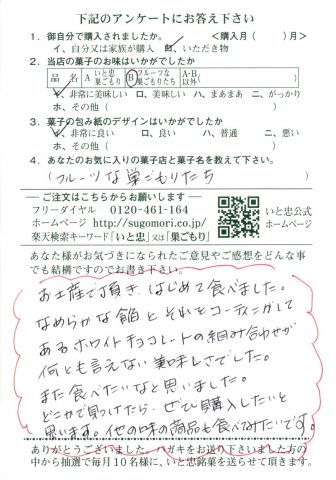 下記のアンケートにお答え下さい
1. 御自分で購入されましたか。 <購入月( )月>
イ、自分又は家族が購入 ロ、いただき物
2. 当店の菓子のお味はいかがでしたか
品 名 A いと忠巣ごもり B フルーツな巣ごもりたち A・B以外( )
イ、非常に美味しい ロ、美味しい ハ、まあまあ ニ、がっかり
ホ、その他( )
3. 菓子の包み紙のデザインはいかがでしたか
イ、非常に良い ロ、良い ハ、普通 ニ、悪い
ホ、その他( )
4. あなたのお気に入りの菓子店と菓子名を教えて下さい。
(フルーツな巣ごもりたち )
ご注文はこちらからお願いします
フリーダイヤル 0120-461-164
ホームページ http://sugomori.co.jp/
楽天検索キーワード「いと忠」又は「巣ごもり」
いと忠公式
ホームページ
あなた様がお気づきになられたご意見やご感想をどんな事
でも結構ですのでお書き下さい。
お土産で頂き、はじめて食べました。
なめらかな餡とそれをコーティングして
あるホワイトチョコレートの組み合わせが
何とも言えない美味しさでした。
また食べたいなと思いました。
どこかで見つけたら、ぜひ購入したいと
思います。他の味の商品も食べてみたいです。
ありがとうございました。ハガキをお送り下さいました方の
中から抽選で毎月10名様に、いと忠銘菓を送らせて頂きます。